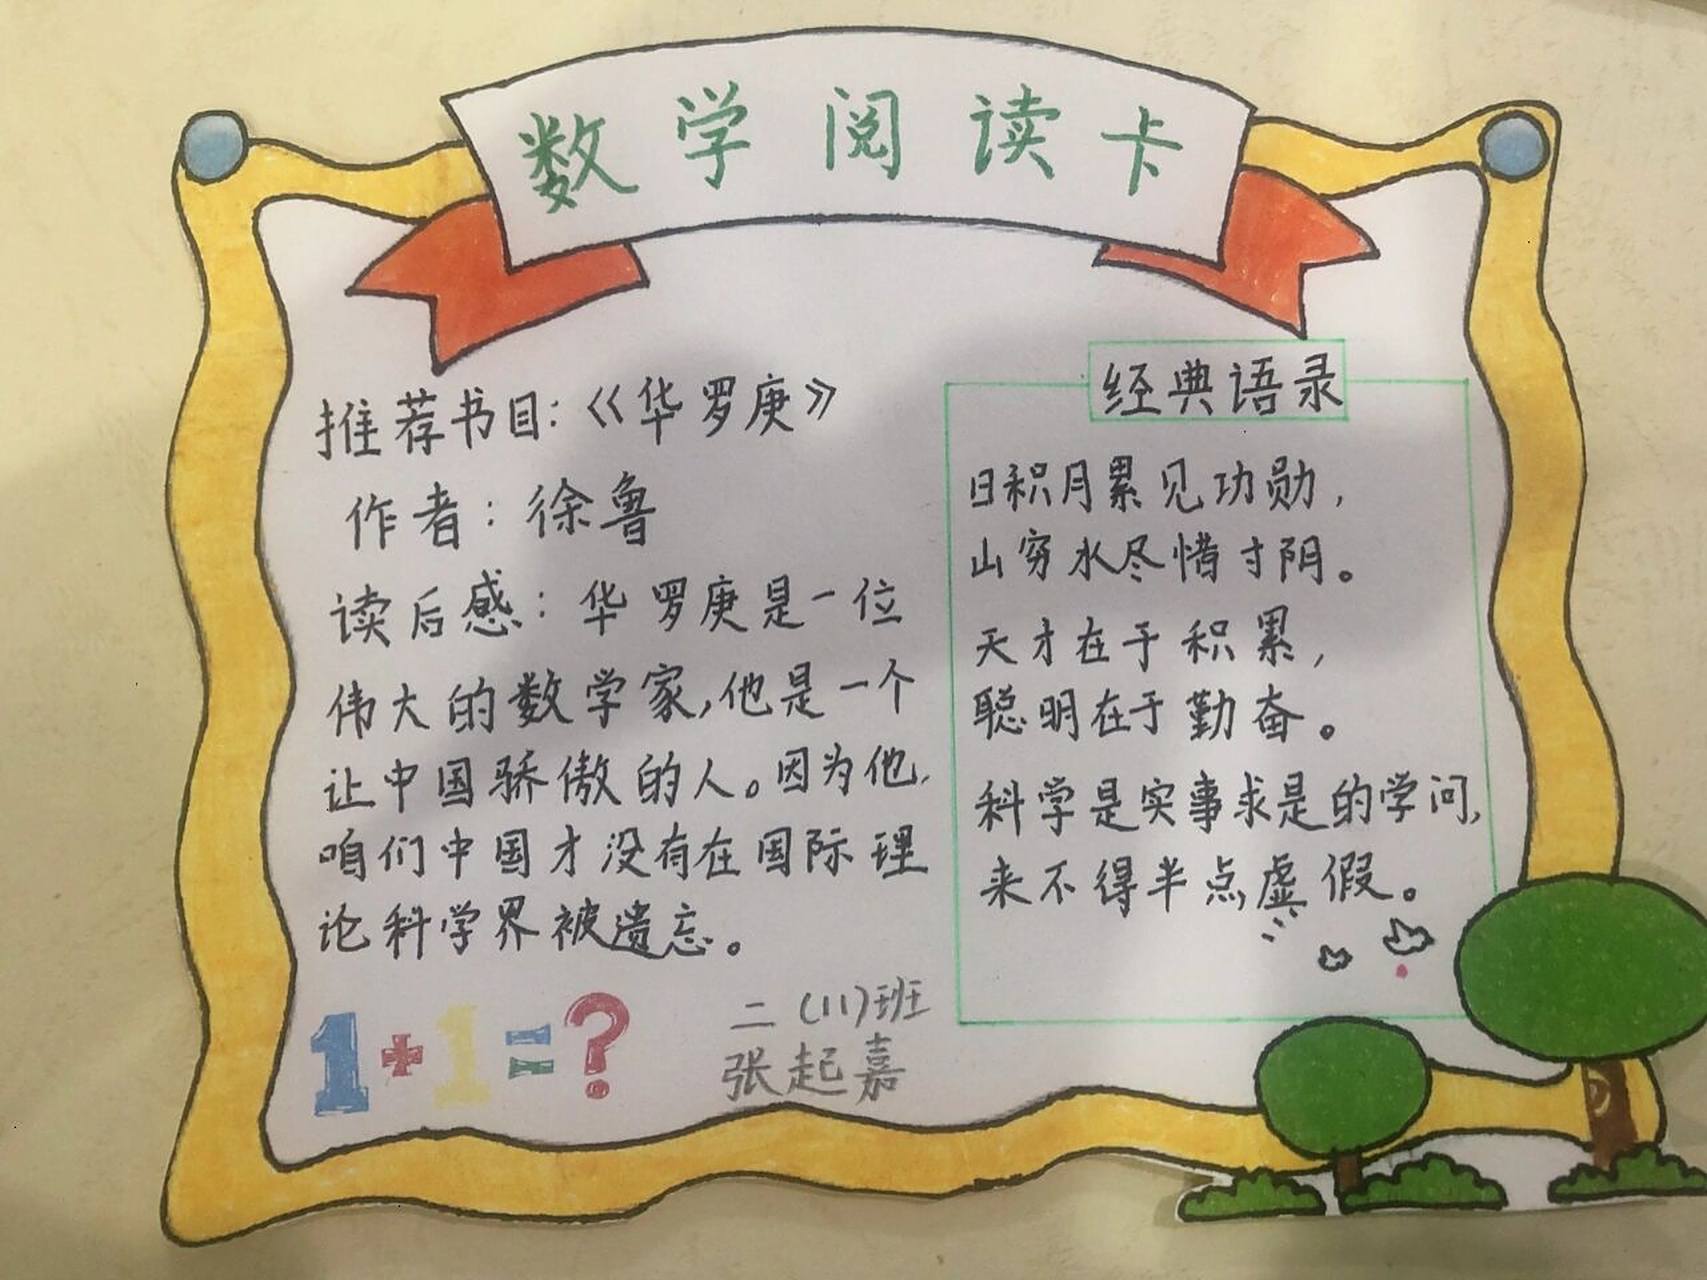 数学阅读卡
推荐书目:《华罗庚》
作者:徐鲁
读后感:华罗庚是一位
伟大的数学家,他是一个
让中国骄傲的人。因为他,
咱们中国才没有在国际理
论科学界被遗忘。
1+1=?
二(11)班
张起嘉
经典语录
日积月累见功勋,
山穷水尽惜寸阴。
天才在于积累,
聪明在于勤奋。
科学是实事求是的学问,
来不得半点虚假。